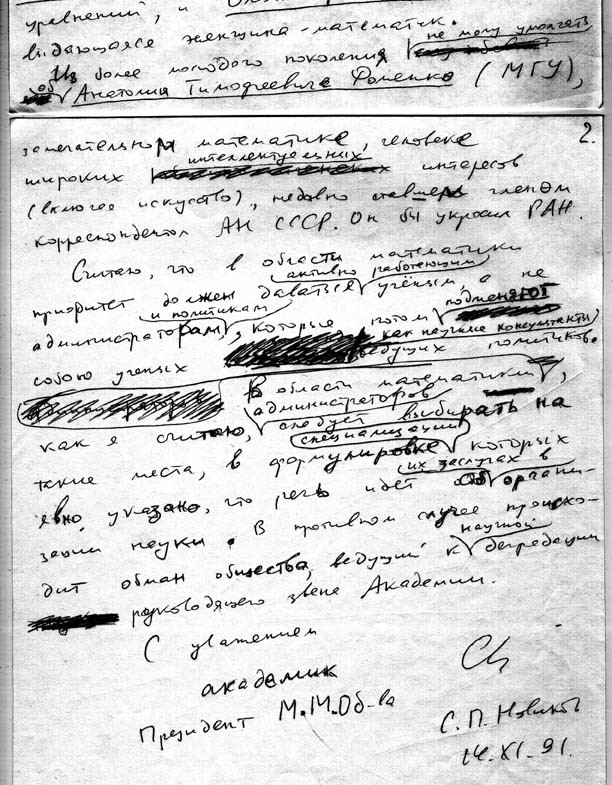 уравнений, и
выдающаяся женщина-математик.
Из более молодого поколения не могу умолчать
об Анатолии Тимофеевиче Фоменко (МГУ),
2.
замечательном математике, человеке
широких интеллектуальных интересов
(включая искусство), недавно ставшем членом
корреспондентом АН СССР. Он бы украсил РАН.
Считаю, что в области математики
приоритет должен даваться активно работающим учёным, а не
администраторам и политикам, которые потом подменяют
собою ученых как научные консультанты ведущих политиков.
В области математики,
как я считаю, администраторов следует выбирать на
такие места, в формулировке специализации которых
явно указано, что речь идет об их заслугах в органи-
зации науки. В противном случае происхо-
дит обман общества, ведущий к научной деградации
руководящего звена Академии.
С уважением
академик
Президент М.М.Об-ва
С. П. Новиков
14.XI.91.